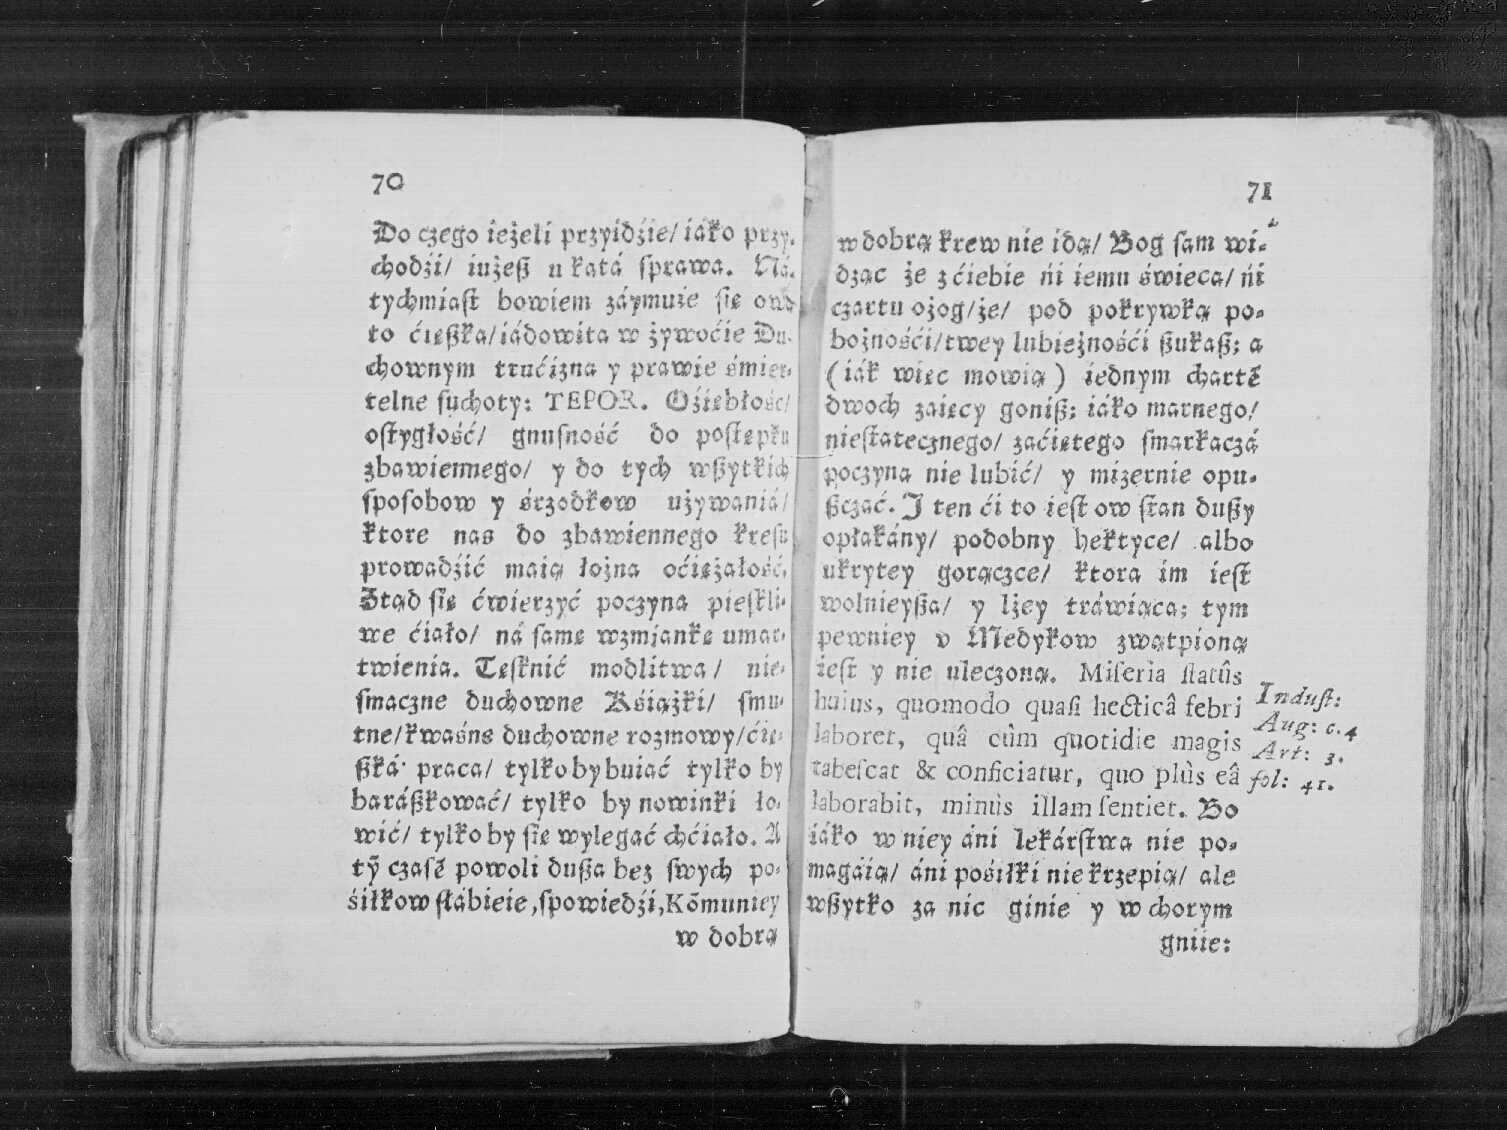 70
Do czego ieżeli przyidźie/ iáko przy-
chodźi/ iużeß u katá ſprawa. Ná-
tychmiaſt bowiem záymuie ſię owá
to ćięßka/iádowita w żywoćie Du-
chownym trućizna y prawie śmier-
telne ſuchoty: TEPOR. Oźiębłość/
oſtygłość/ gnuſność do poſtępku
zbawiennego/ y do tych wßytkich
ſpoſobow y śrzodkow używaniá/
ktore nas do zbawiennego kreſu
prowadźić maią łożna oćiężałość.
Ztąd ſię ćwierzyć poczyna pieſkli-
we ćiało/ ná ſamę wzmiankę umar-
twienia. Tęſknić modlitwa/ nie-
ſmaczne duchowne Kśiążki/ ſmu-
tne/kwaśne duchowne rozmowy/ćię-
ßká praca/ tylko by buiać tylko by
baráßkować/ tylko by nowinki ło-
wić/ tylko by ſię wylegać chćiało. A
tỹ czaſẽ powoli dußa bez ſwych po-
śiłkow ſłábieie, ſpowiedźi, Kõmuniey
w dobrą
71
w dobrą krew nie idą/ Bog ſam wi-
dząc że z ćiebie ńi iemu święca/ ńi
czartu ożog/że/ pod pokrywką po-
bożnośći/twey lubieżnośći ßukaß; a
(iák więc mowią) iednym chartẽ
dwoch záięcy goniß; iáko marnego/
nieſtatecznego/ záćiętego ſmarkaczá
poczyna nie lubić/ y mizernie opu-
ßczáć. J ten ći to ieſt ow ſtan dußy
opłakány/ podobny hektyce/ albo
ukrytey gorączce/ ktora im ieſt
wolnieyßa/ y lżey tráwiąca; tym
pewniey v Medykow zwątpioną
ieſt y nie uleczoną. Miſeria ſtatûs
huius, quomodo quaſi hecticâ febri
laboret, quâ cùm quotidie magis
tabeſcat & conficiatur, quo plùs eâ
laborabit, minùs illam ſentiet. Bo
iáko w niey áni lekárſtwa nie po-
magáią/ áni pośiłki nie krzepią/ ale
wßytko za nic ginie y w chorym
gniie:
Induſt:
Aug: c. 4
Art: 3.
fol: 41.